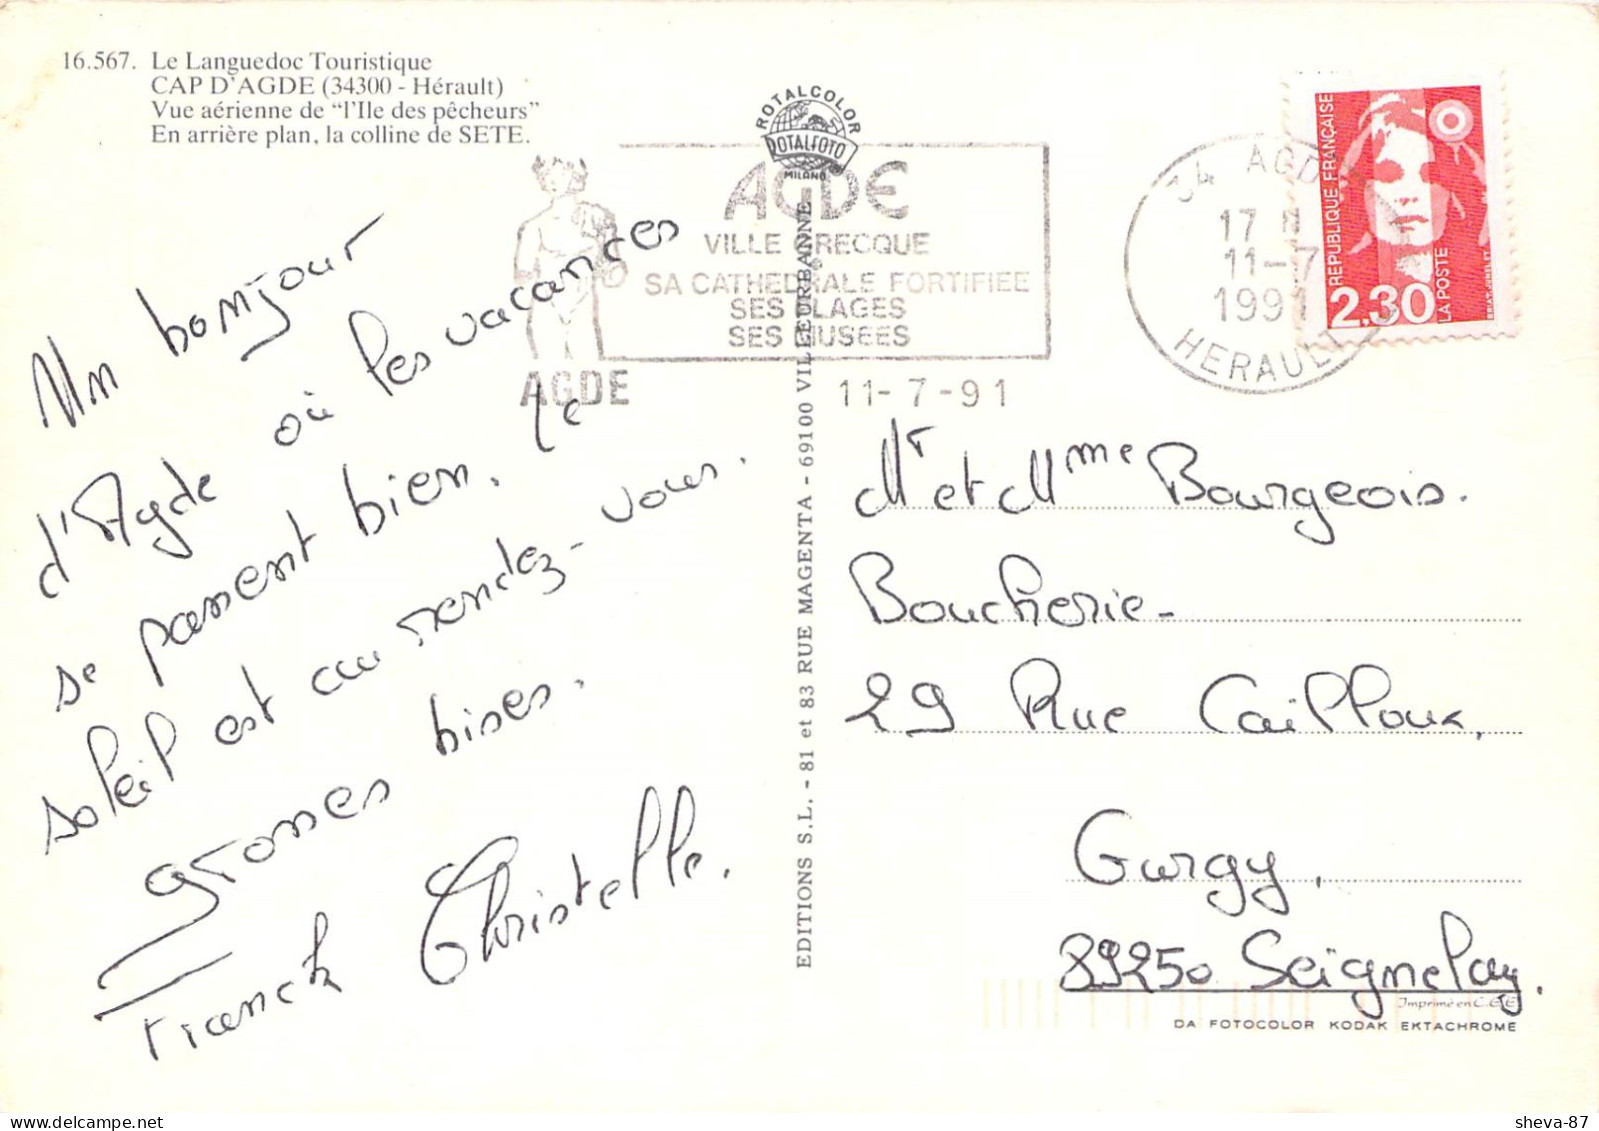 16.567. Le Languedoc Touristique
CAP D'AGDE (34300 - Hérault)
Vue aérienne de "l'Ile des pêcheurs"
En arrière plan, la colline de SETE.
ROTALCOLOR
ROTALFOTO
MILANO
AGDE
VILLE GRECQUE
SA CATHEDRALE FORTIFIEE
SES PLAGES
SES MUSEES
AGDE
11-7-91
34 AGDE
17 H
11-7
1991
HERAULT
REPUBLIQUE FRANÇAISE
2,30
LA POSTE
Un bonjour
d'Agde où les vacances
se passent bien, le
soleil est au rendez-vous.
grosses bises.
Franck Christelle.
EDITIONS S.L. - 81 et 83 RUE MAGENTA - 69100 VILLEURBANNE
Mr et Mme Bourgeois.
Boucherie-
29 Rue Cailloux,
Gurgy,
89250 Seignelay.
Imprimé en C.E.E.
DA FOTOCOLOR KODAK EKTACHROME
sheva-87